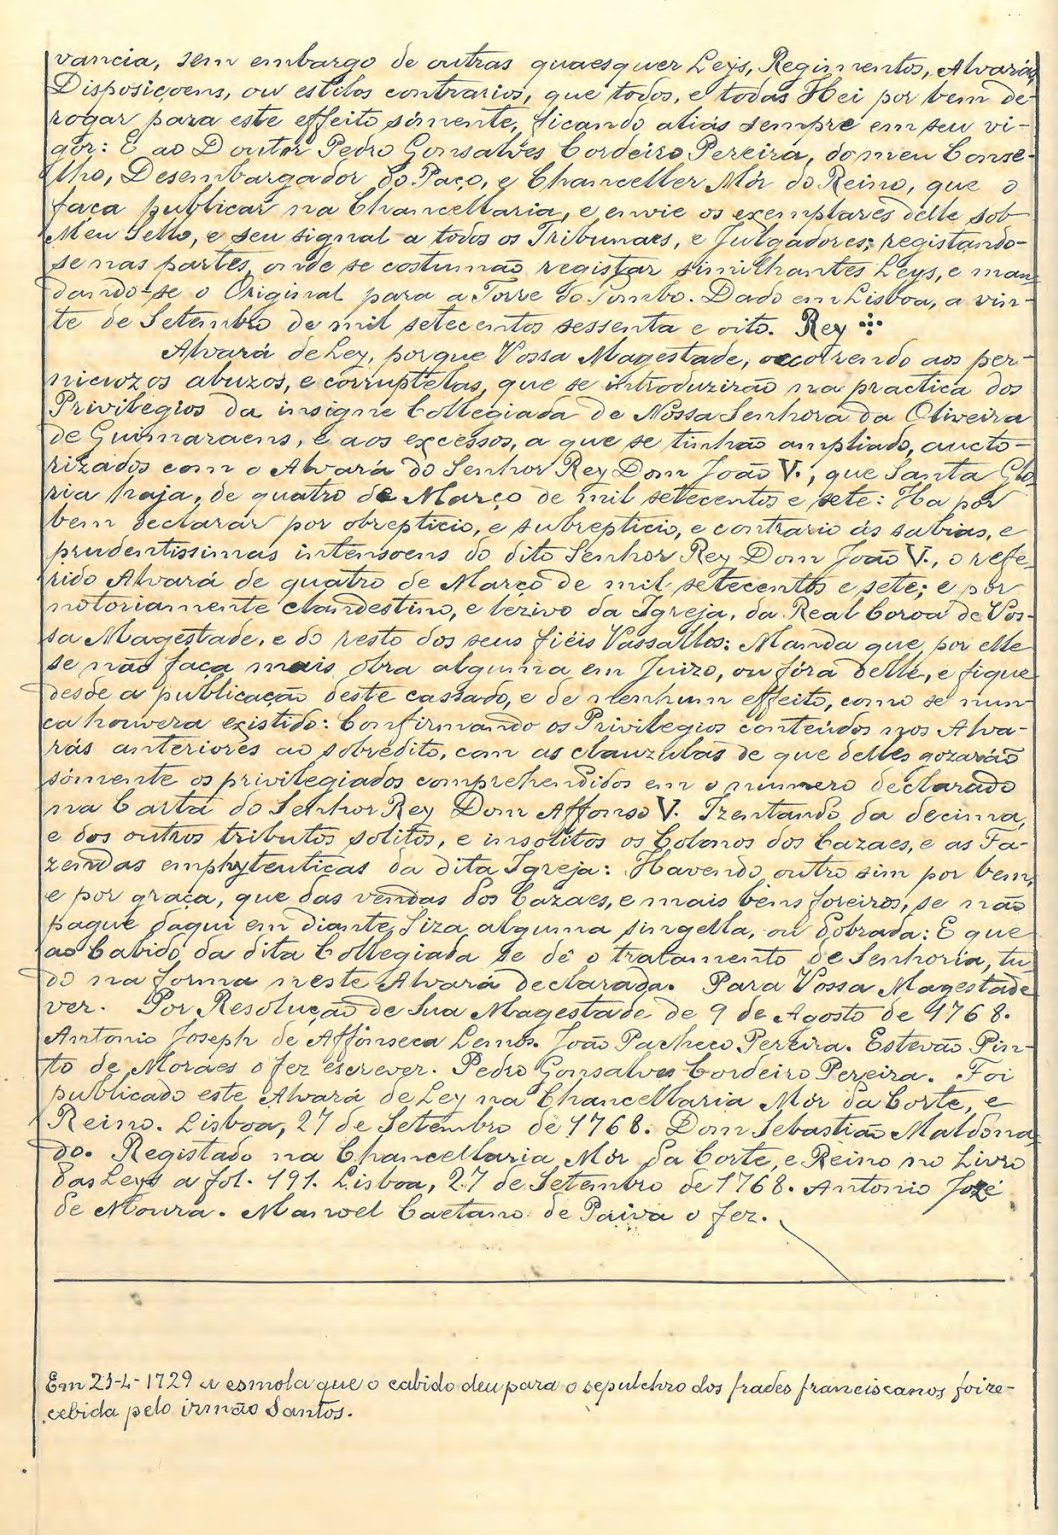 vancia, sem embargo de outras quaesquer Leys, Regimentos, Alvarás,
Disposiçoens, ou estilos contrarios, que todos, e todas Hei por bem de-
rogar para este effeito sómente, ficando aliás sempre em seu vi-
gor: E ao Doutor Pedro Gonsalves Cordeiro Pereira, do meu Conse-
lho, Desembargador do Paço, e Chanceller Mór do Reino, que o
faça publicar na Chancellaria, e envie os exemplares delle sob
Meu Sello, e seu signal a todos os Tribunaes, e Julgadores; registando-
se nas partes, onde se costumão registar similhantes Leys, e man-
dando-se o Original para a Torre do Tombo. Dado em Lisboa, a vin-
te de Setembro de mil setecentos sessenta e oito. Rey
Alvará de Ley, porque Vossa Magestade, occorrendo aos per-
niciozos abuzos, e corruptelas, que se introduzirão na practica dos
Privilegios da insigne Collegiada de Nossa Senhora da Oliveira
de Guimaraens, e aos excessos, a que se tinhão ampliado, aucto-
rizados com o Alvará do Senhor Rey Dom João V., que Santa Glo-
ria haja, de quatro de Março de mil setecentos e sete: Ha por
bem declarar por obrepticio, e subrepticio, e contrario ás sabias, e
prudentissimas intensoens do dito Senhor Rey Dom João V., o refe-
rido Alvará de quatro de Março de mil setecentos e sete; e por
notoriamente clandestino, e lezivo da Igreja, da Real Coroa de Vos-
sa Magestade, e do resto dos seus fiéis Vassallos: Manda que por elle
se não faça mais obra alguma em Juizo, ou fóra delle, e fique
desde a publicação deste cassado, e de nenhum effeito, como se nun-
ca houvera existido: Confirmando os Privilegios conteúdos nos Alva-
rás anteriores ao sobredito, com as clauzulas de que delles gozarão
sómente os privilegiados comprehendidos em o número declarado
na Carta do Senhor Rey Dom Affonso V. Izentando da decima,
e dos outros tributos solitos, e insolitos os Colonos dos Cazaes, e as Fa-
zendas emphyteuticas da dita Igreja: Havendo outro sim por bem,
e por graça, que das vendas dos Cazaes, e mais bens foreiros, se não
pague daqui em diante Siza alguma singella, ou dobrada: E que
ao Cabido da dita Collegiada se dê o tratamento de Senhoria, tu-
do na forma neste Alvará declarada. Para Vossa Magestade
ver. Por Resolução de Sua Magestade de 9 de Agosto de 1768.
Antonio Joseph de Affonseca Lemos. João Pacheco Pereira. Estevão Pin-
to de Moraes o fez escrever. Pedro Gonsalves Cordeiro Pereira. Foi
publicado este Alvará de Ley na Chancellaria Mór da Corte, e
Reino. Lisboa, 27 de Setembro de 1768. Dom Sebastião Maldona-
do. Registado na Chancellaria Mór da Corte, e Reino no Livro
das Leys a fol. 191. Lisboa, 27 de Setembro de 1768. Antonio José
de Moura. Manoel Caetano de Paiva o fez.
Em 23-4-1729 a esmola que o cabido deu para o sepulchro dos frades franciscanos foi re-
cebida pelo irmão Santos.